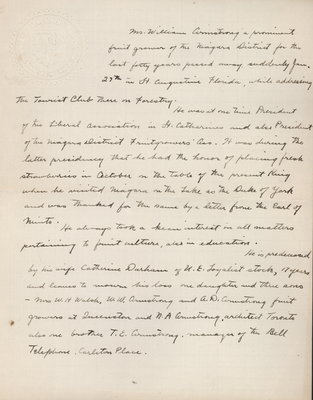 Mr. William Armstrong a prominent
fruit grower of the Niagara District for the
last forty years passed away suddenly Jan.
27th in St. Augustine Florida, while addressing
the Tourist Club there on Forestry.
He was at one time President
of the Liberal Association in St. Catharines and also President
of the Niagara District Fruitgrowers' Ass. It was during the
latter presidency that he had the honor of placing fresh
strawberries in October on the table of the present King
when he visited Niagara on the Lake as the Duke of York
and was thanked for the same by a letter from the Earl of
Minto.
He always took a keen interest in all matters
pertaining to fruit culture, also in education.
He is predeceased
by his wife Catherine Durham of U.E. Loyalist stock, years
and leaves to mourn his loss one daughter and three sons
- Mrs W.H. Walsh, W.W. Armstrong and A.D. Armstrong fruit
growers at Queenston and N.A Armstrong, architect Toronto
also one brother T.E. Armstrong, manager of the Bell
Telephone, Carleton Place.